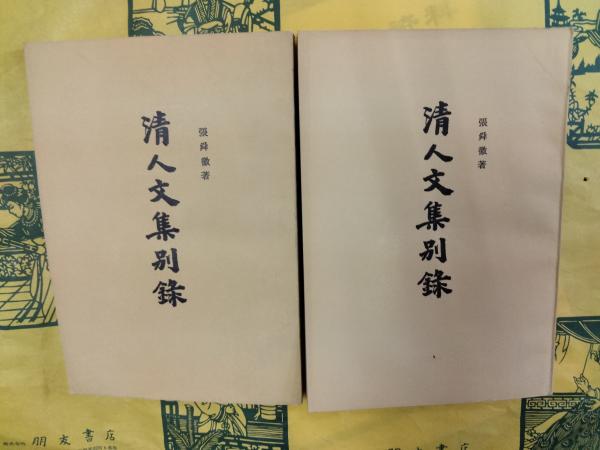 清人文集别錄
張舜徽著
清人文集别錄
張舜徽著
朋友書店
朋友書店